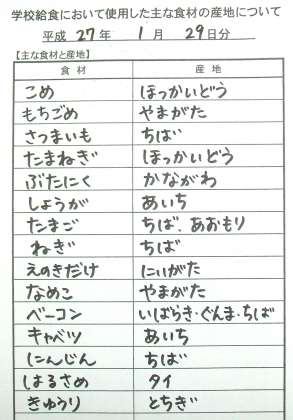 学校給食において使用した主な食材の産地について
平成 27年 1月 29日分
【主な食材と産地】
食材 産地
こめ ほっかいどう
もちごめ やまがた
さつまいも ちば
たまねぎ ほっかいどう
ぶたにく かながわ
しょうが あいち
たまご ちば、あおもり
ねぎ ちば
えのきだけ にいがた
なめこ やまがた
ベーコン いばらき・ぐんま・ちば
キャベツ あいち
にんじん ちば
はるさめ タイ
きゅうり とちぎ